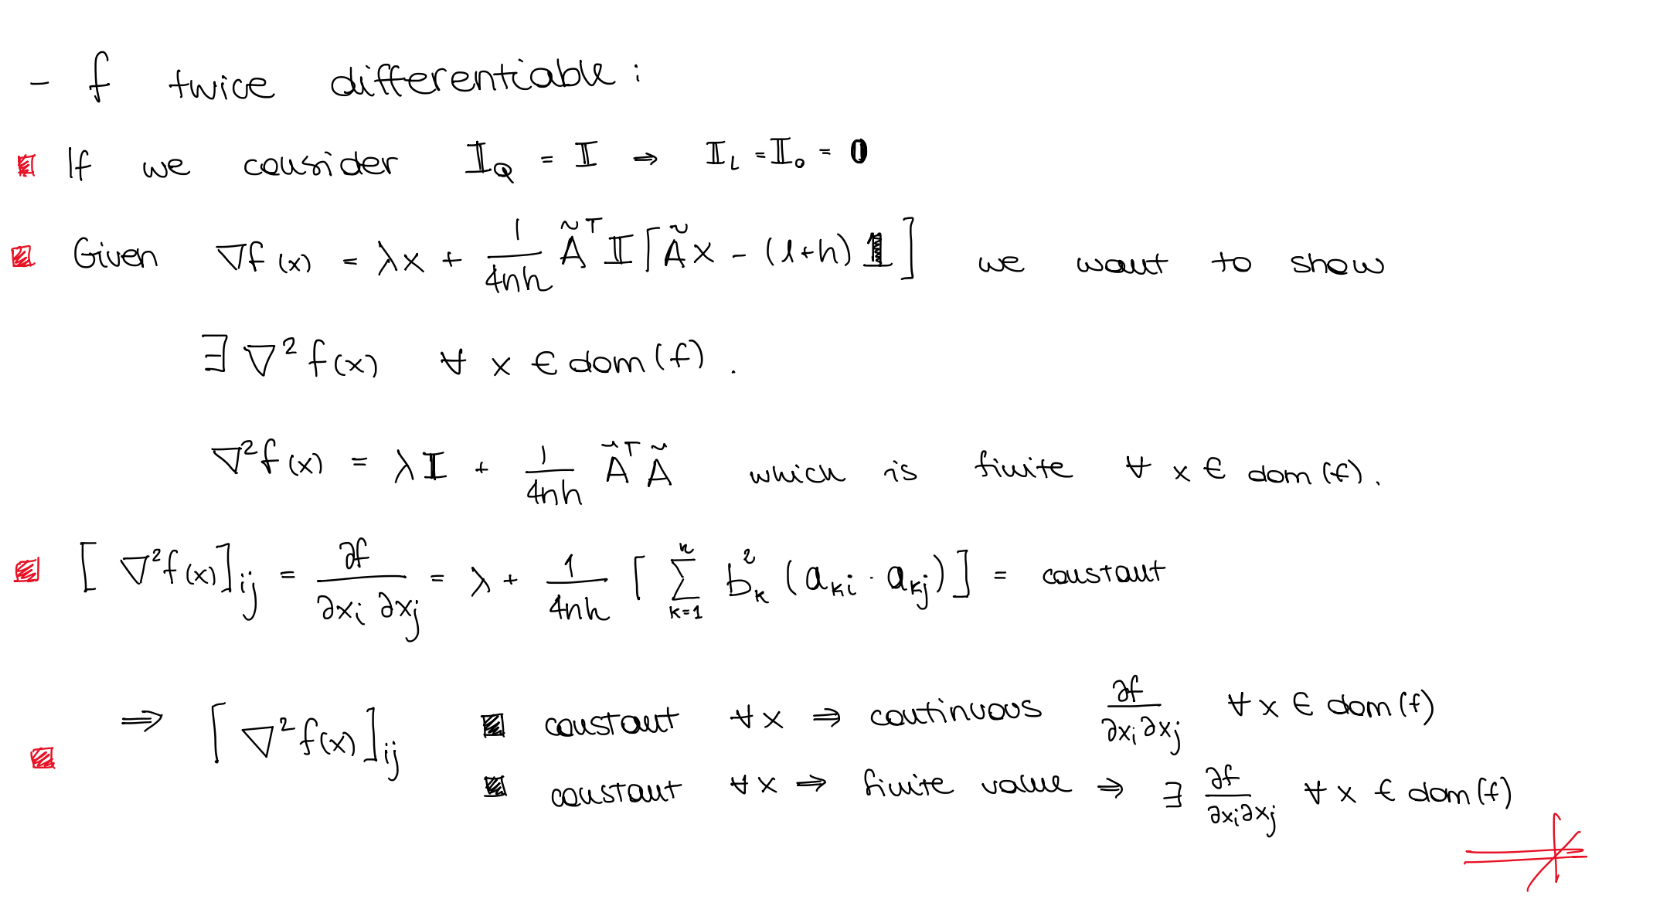 - f twice differentiable :
If we consider 𝕀_Q = 𝕀 ⇒ 𝕀_L = 𝕀_0 = 0
Given ∇f(x) = λx + 1/4nh Ã^T 𝕀 [Ãx - (1+h) 𝟙] we want to show
∃ ∇²f(x) ∀ x ∈ dom(f) .
∇²f(x) = λ𝕀 + 1/4nh Ã^T Ã which is finite ∀ x ∈ dom(f).
[∇²f(x)]_ij = ∂f/∂x_i ∂x_j = λ + 1/4nh [ ∑_{k=1}^{n} b_k^2 (a_ki · a_kj) ] = constant
⇒ [∇²f(x)]_ij constant ∀x ⇒ continuous ∂f/∂x_i∂x_j ∀x ∈ dom(f)
constant ∀x ⇒ finite value ⇒ ∃ ∂f/∂x_i∂x_j ∀x ∈ dom(f)